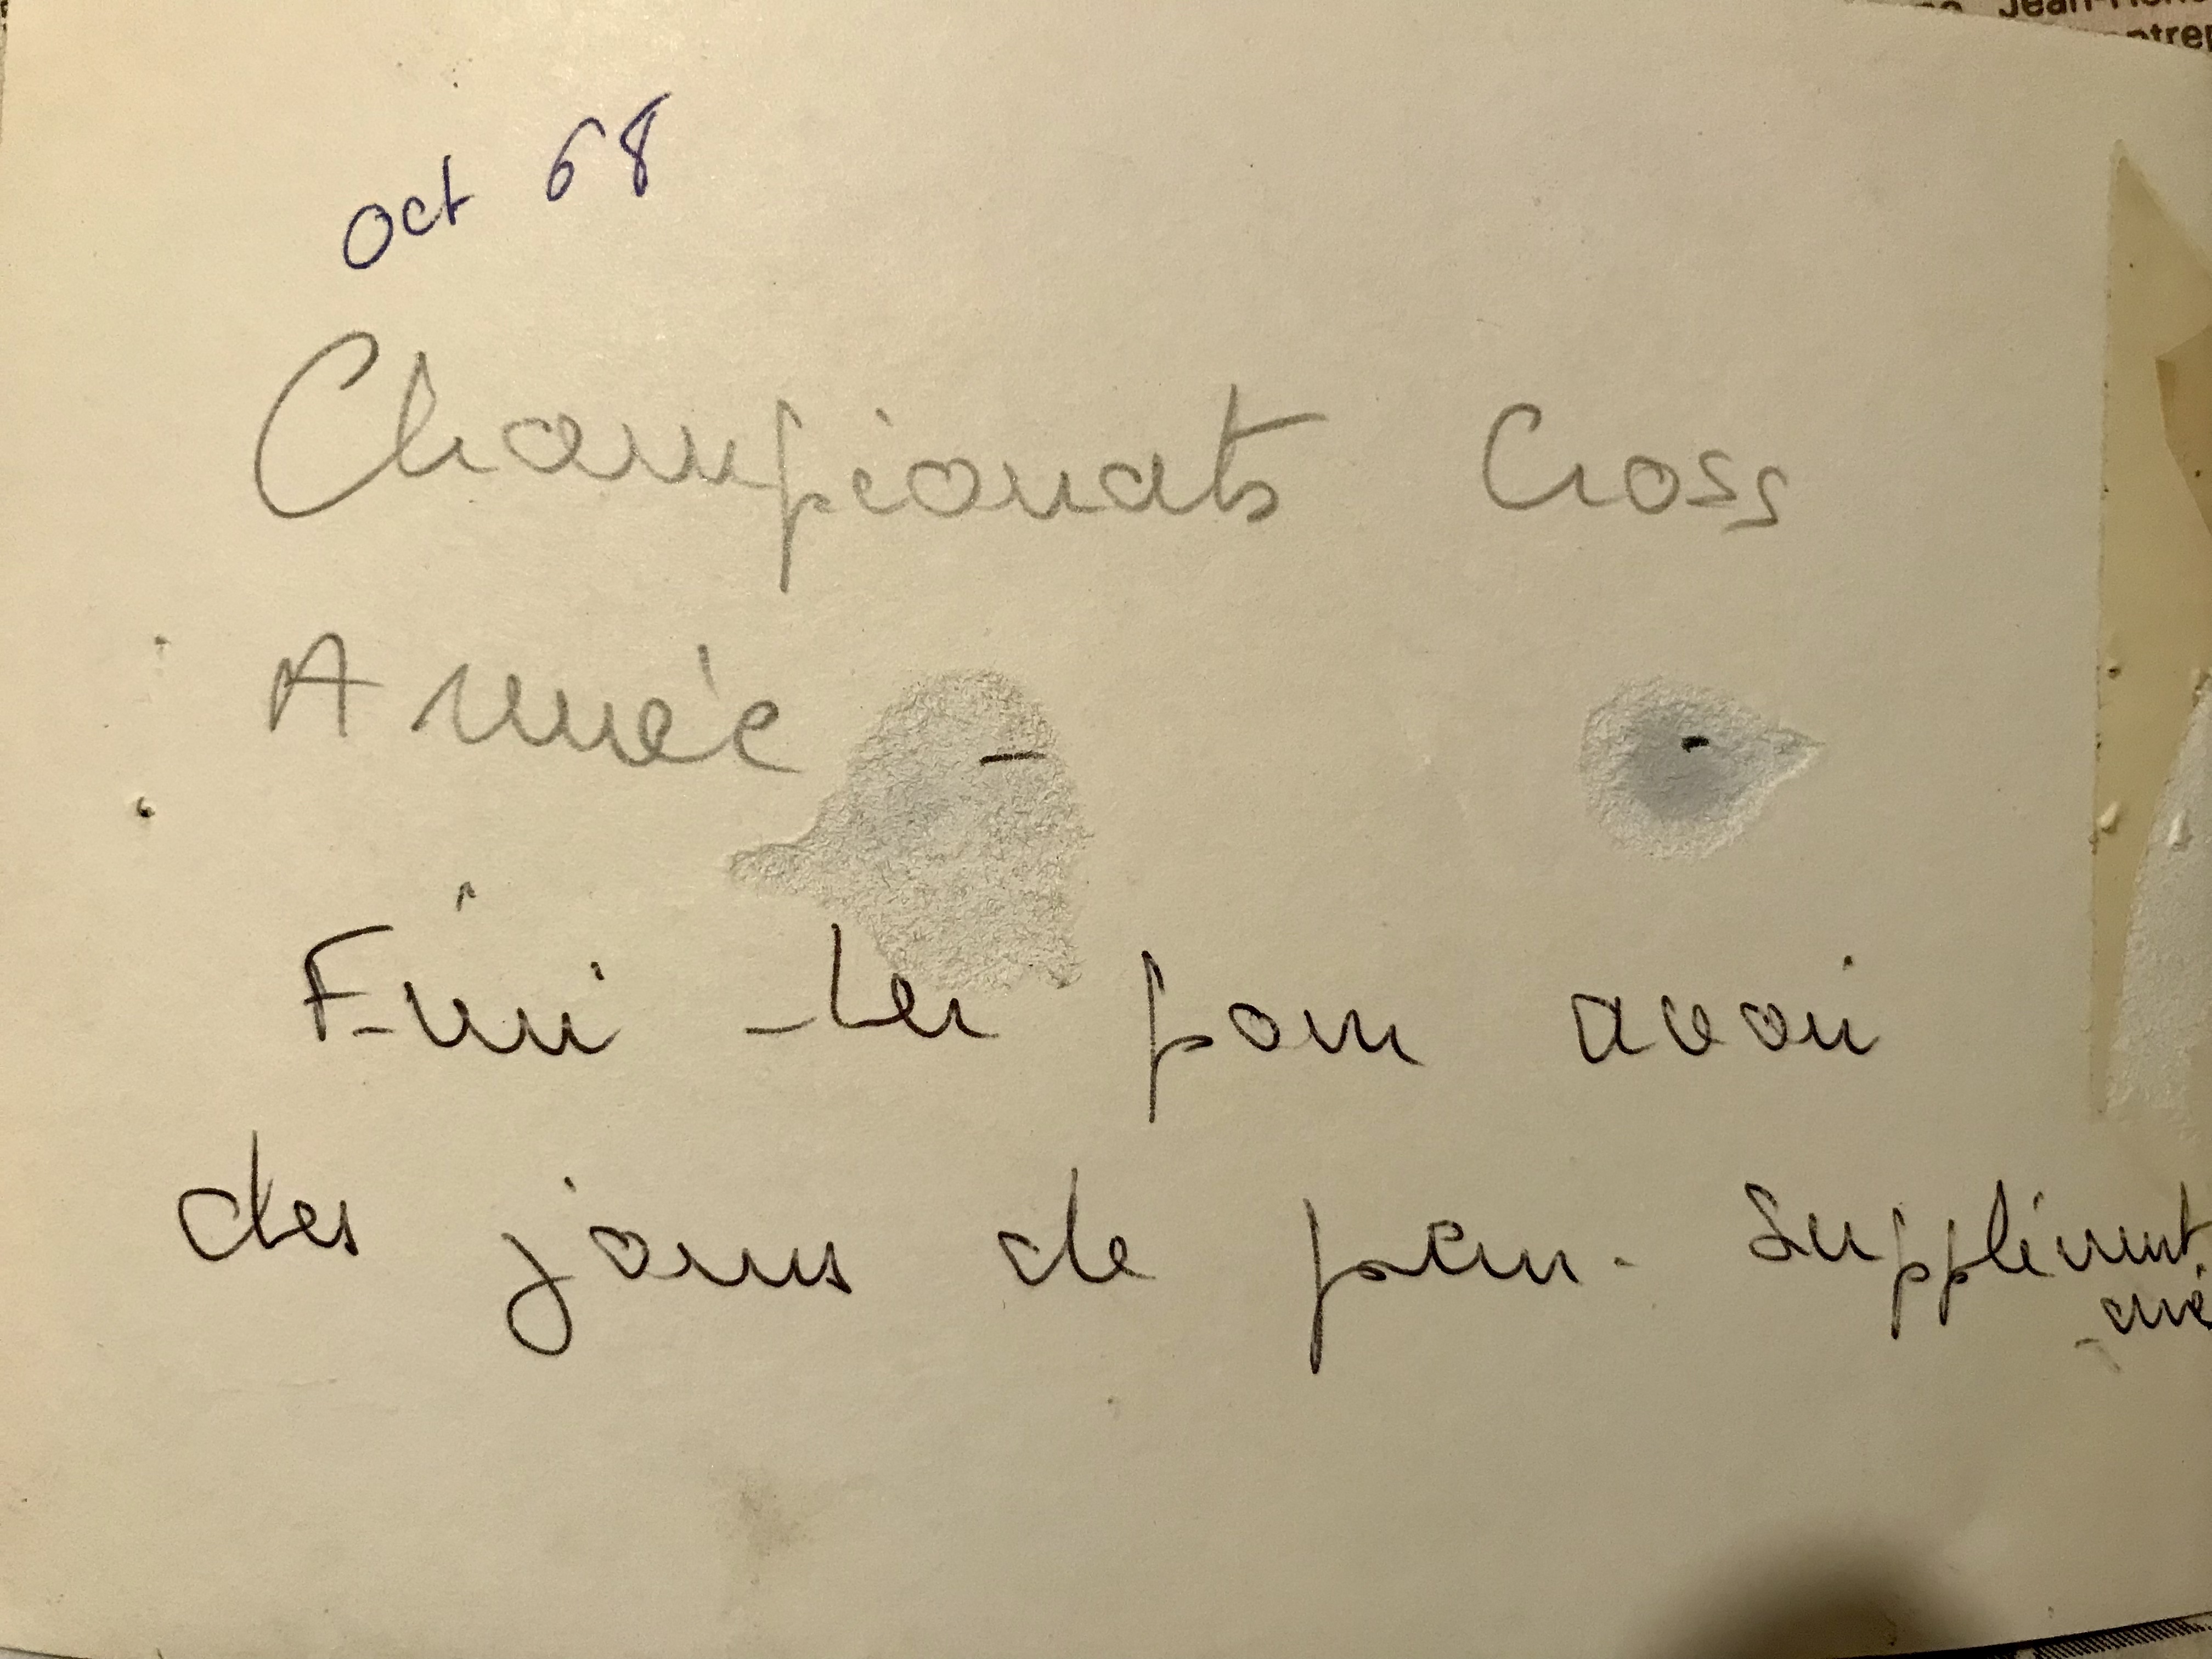 Jean-
oct 68
Championats Cross
Armée
Fini -1er pour avoir
des jours de perm. Supplément.